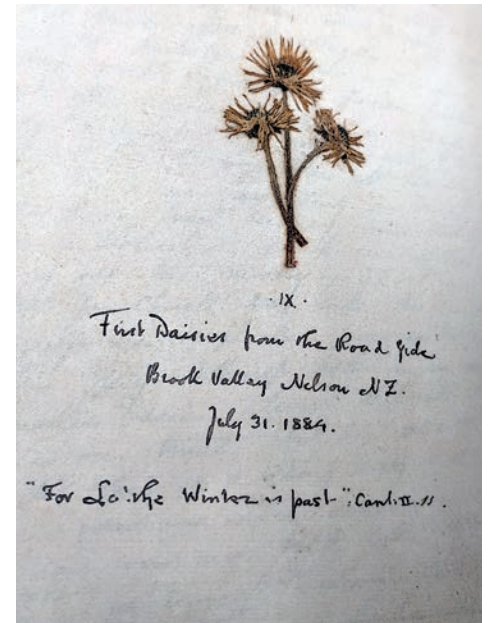 · IX ·
First Daisies from the Road Side
Brook Valley Nelson NZ.
July 31. 1884.
"For Lo! the Winter is past": Cant. II. 11.